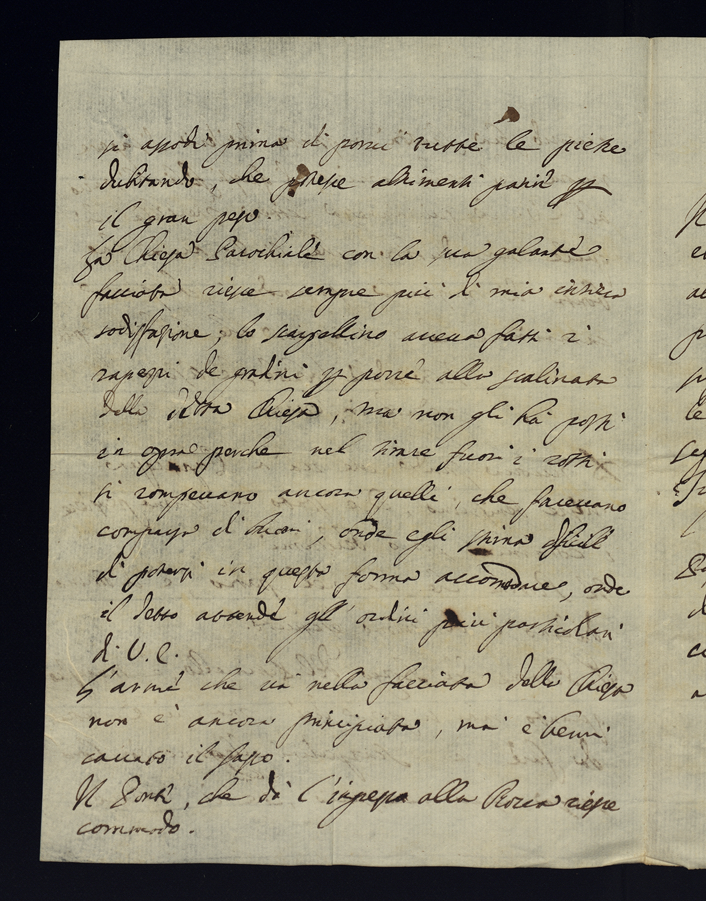 si assodi prima di porvi tutte le pietre
dubitando, che potesse altrimenti patire p
il gran peso.
La Chiesa Parochiale con la sua galante
facciata riesce sempre più di mia intiera
sodisfazione; lo scarpellino aveva fatti i
rapezzi de gradini p porre alla scalinata
della detta Chiesa, ma non gli hà posti
in opra perche nel tirare fuori i rotti
si rompevano ancora quelli, che facevano
compagn di buoni, onde egli stima dificile
di potersi in questa forma accomodare, onde
il detto attende gl'ordini più particolari
di V. E.
L'arme che và nella facciata della Chiesa
non è ancora principiata, ma è bensi
cavato il sasso.
Il Ponte, che dà l'ingresso alla Rocca riesce
commodo.